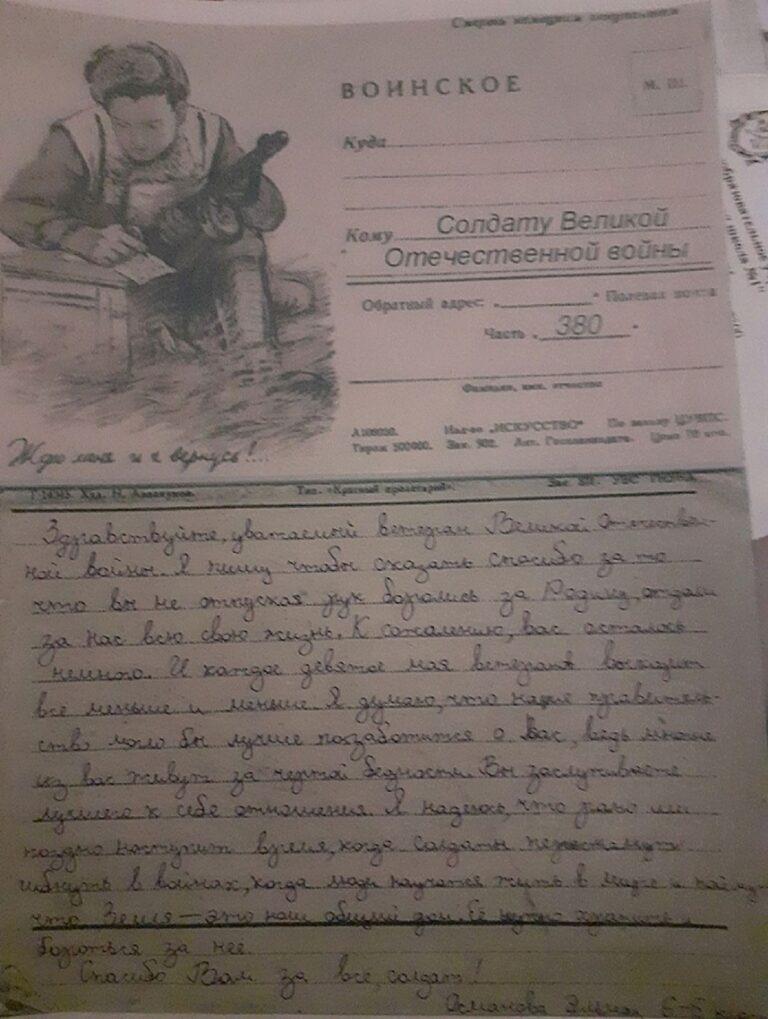 Смерть немецким оккупантам
ВОИНСКОЕ
М. Ш.
Куда
Кому Солдату Великой
Отечественной войны
Обратный адрес: „ “ Полевая почта
Часть „ 380 “
Фамилия, имя, отчество
Изд-во „ИСКУССТВО“ По заказу
Тираж 500000. Зак. 902.
Жди меня и я вернусь!...
Тип. «Красный пролетарий».
Здравствуйте, уважаемый ветеран Великой Отечествен-
ной войны. Я пишу чтобы сказать спасибо за то
что вы не отпуская рук боролись за Родину, отдали
за нас всю свою жизнь. К сожалению, вас осталось
немного. И каждое девятое мая ветеранов выходит
всё меньше и меньше. Я думаю, что наше правитель-
ство могло бы лучше позаботится о Вас, ведь многие
из вас живут за чертой бедности. Вы заслуживаете
лучшего к себе отношения. Я надеюсь, что рано или
поздно наступит время, когда солдаты перестанут
гибнуть в войнах, когда люди научатся жить в мире и поймут
что Земля — это наш общий дом. Её нужно хранить и
бороться за неё.
Спасибо Вам за всё, солдат!
Османова